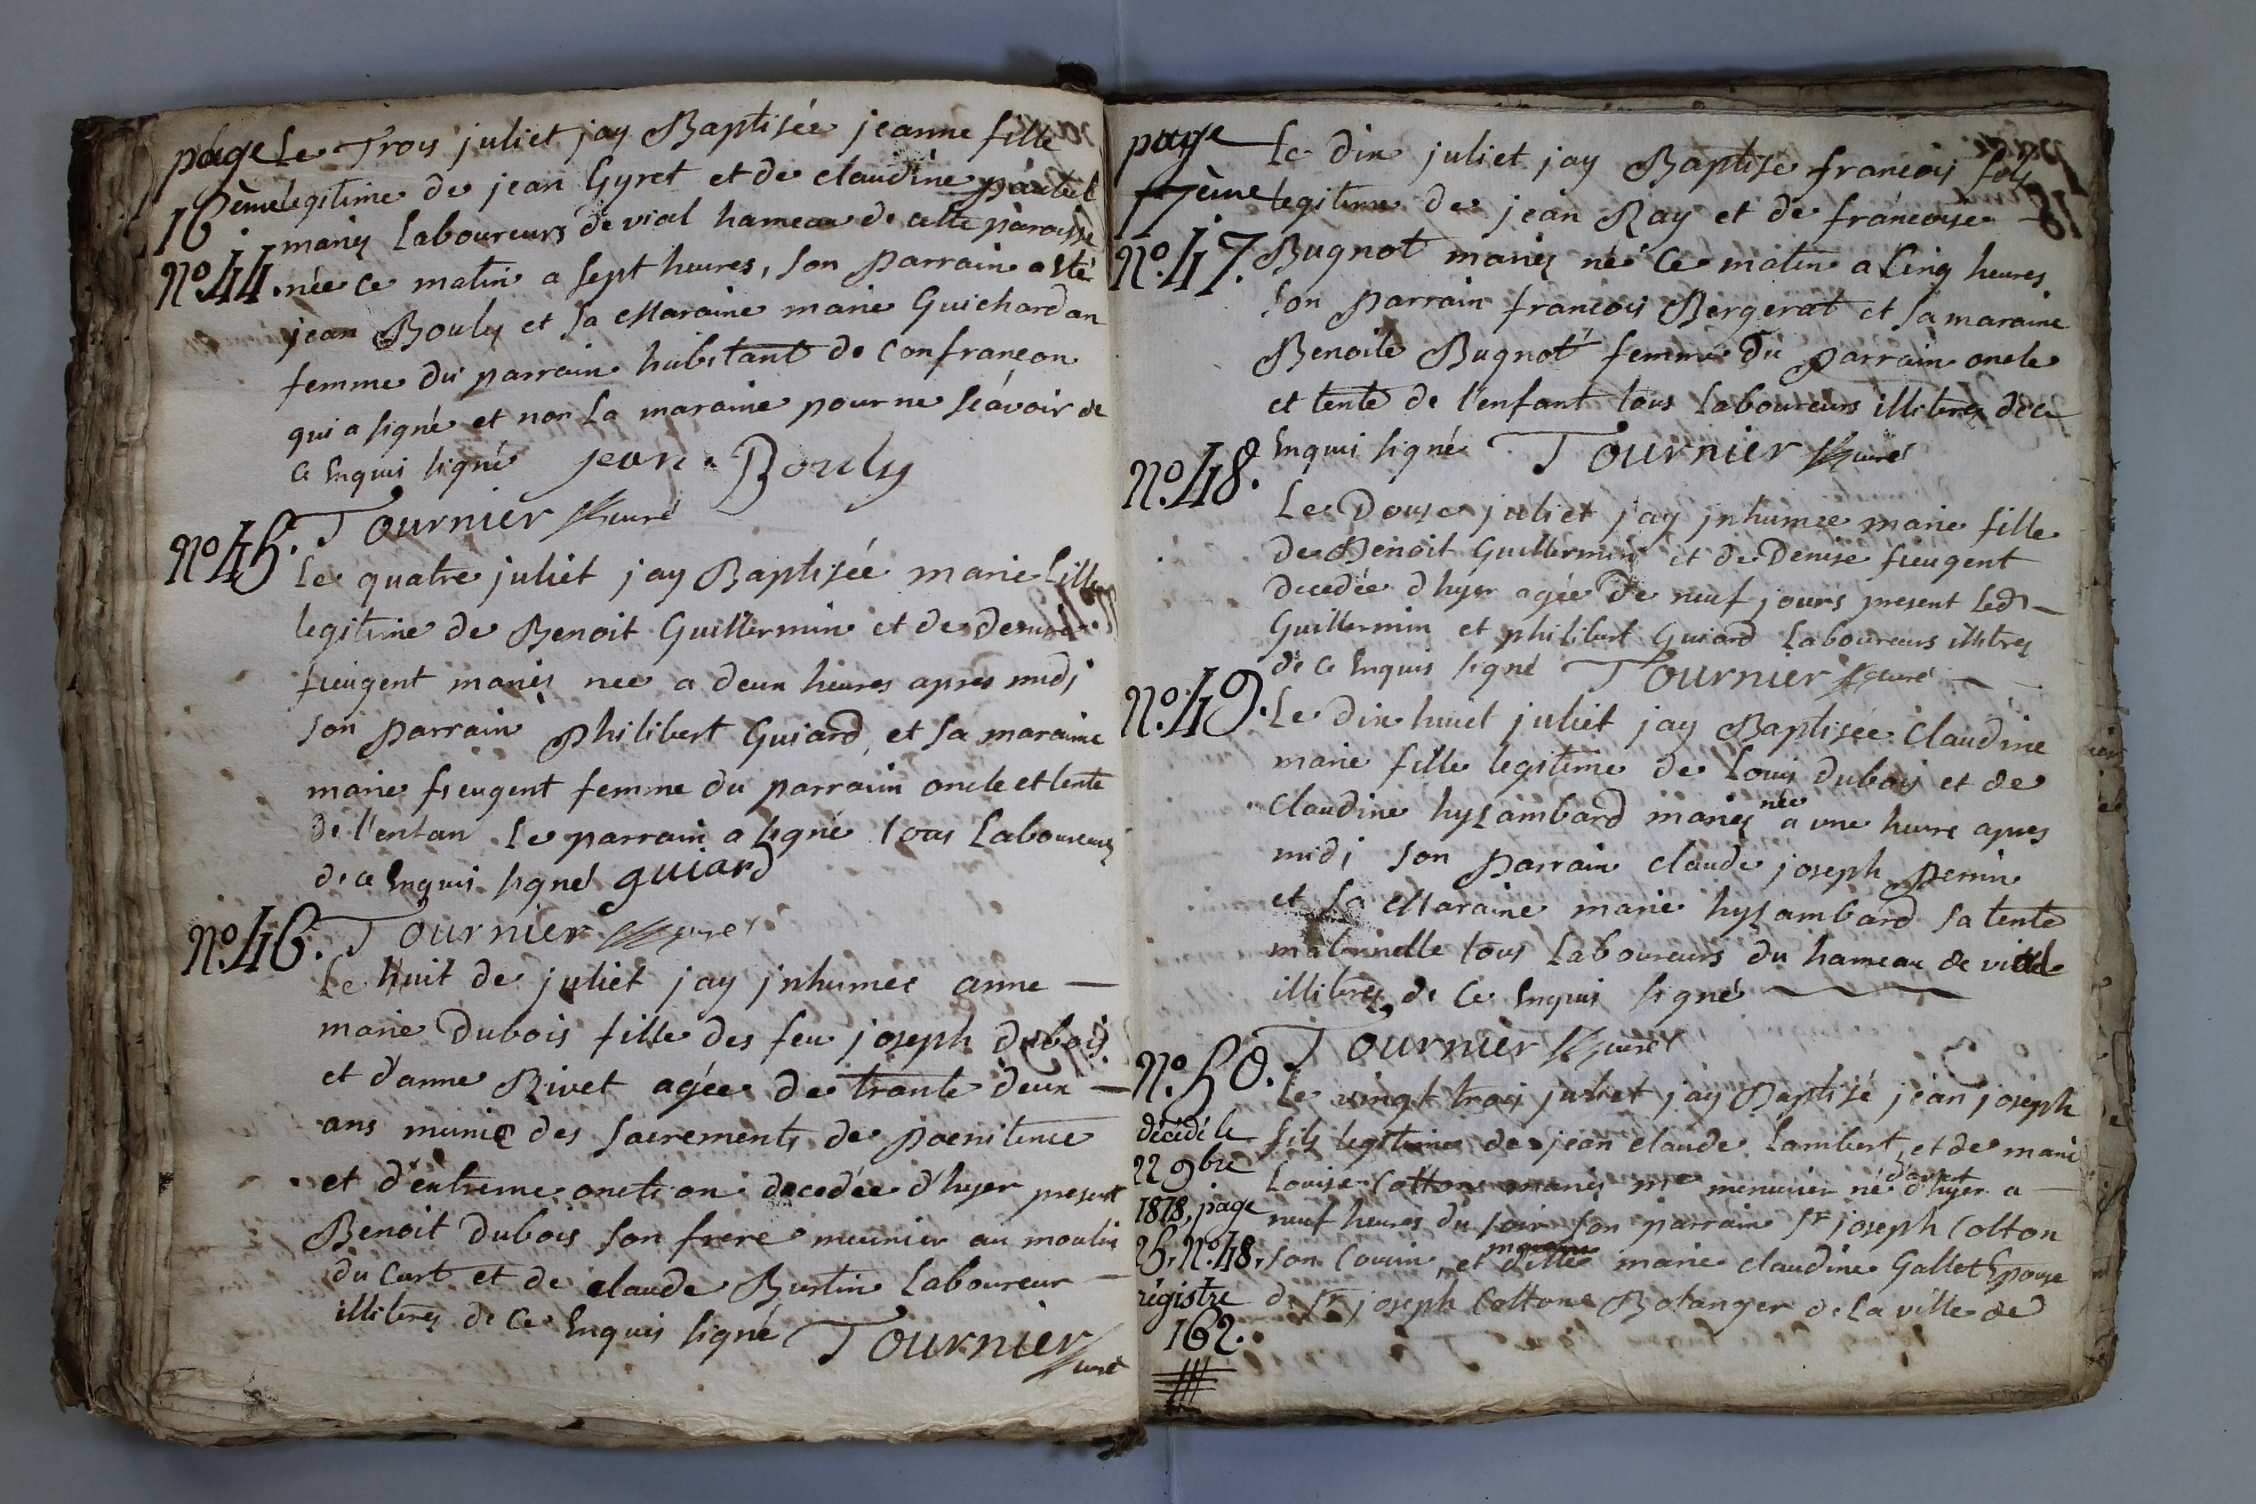 page
16ème
Le Trois juliet jay Baptisée jeanne fille
légitime de jean Gyret et de claudine
mariés Laboureurs de vial hameau de cette paroisse
N.º 44. née ce matin a sept heures, son parrain a sté
jean Bouly et sa Maraine marie Guichardan
femme du parrain habitant de Confrançon
qui a signé et non la maraine pour ne scávoir de
ce Enquis signé jean. Bouly
N.º 45. Tournier curé
Le quatre juliet jay Baptisée marie fille
legitime de Benoit Guillermin et de denise
fieugent mariés nee a deux heures apres midi
son parrain Philibert Guiard, et sa maraine
marie fieugent femme du parrain oncle et tente
de l'enfan le parrain a signé tous Laboureurs
de ce Enquis signé guiard
N.º 46. Tournier curé
Le huit de juliet jay jnhumée anne —
marie Dubois fille des feu joseph dubois
et d'anne Rivet agée de trante deux —
ans munie des sacrements de poenitence
et d'éxtreme onction decedée d'hyer present
Benoit Dubois son frere meunier au moulin
du Curt et de claude Burtin Laboureur —
illiterés de ce Enquis signé Tournier
curé
page
17ème
18
Le dix juliet jay Baptise francois fils
legitime de jean Ray et de francoise —
N.º 47. Bugnot mariés né ce matin a cinq heures
son parrain francois Bergerat et sa maraine
Benoite Bugnot femme du parrain oncle
et tente de l'enfant tous Laboureurs illiterés de ce
Enquis signé Tournier curé
N.º 48.
Le Douse juliet jay jnhumee marie fille
de Benoit Guillermin et de Denise fieugent
decedée d'hyer agée de neuf jours present led —
Guillermin et philibert Guiard Laboureurs illitrés
de ce Enquis signé Tournier curé —
N.º 49. Le dix huiet juliet jay Baptisée Claudine
marie fille legitime de Louis dubois et de
Claudine hysambard mariés née a une heure apres
midi son parrain claude joseph Perrin
et sa Maraine marie hysambard sa tente
maternelle tous Laboureurs du hameau de viale
illiterés de Ce Enquis signé
Tournier curé
N.º 50. Le vingt trois juliet jay Baptisé jean joseph
fils legitime de jean claude Lambert, et de marie
Louise Cottone mariés me menuisier né d'avant d'hyer a —
neuf heures du soir son parrain Sr joseph Cotton
son Cousin, et maraine dlle marie claudine Gallet Epouse
de Sr joseph Cottone Bolanger de la ville de
décédé le
22 9bre
1818, page
25, N.º 48,
régistre
162.